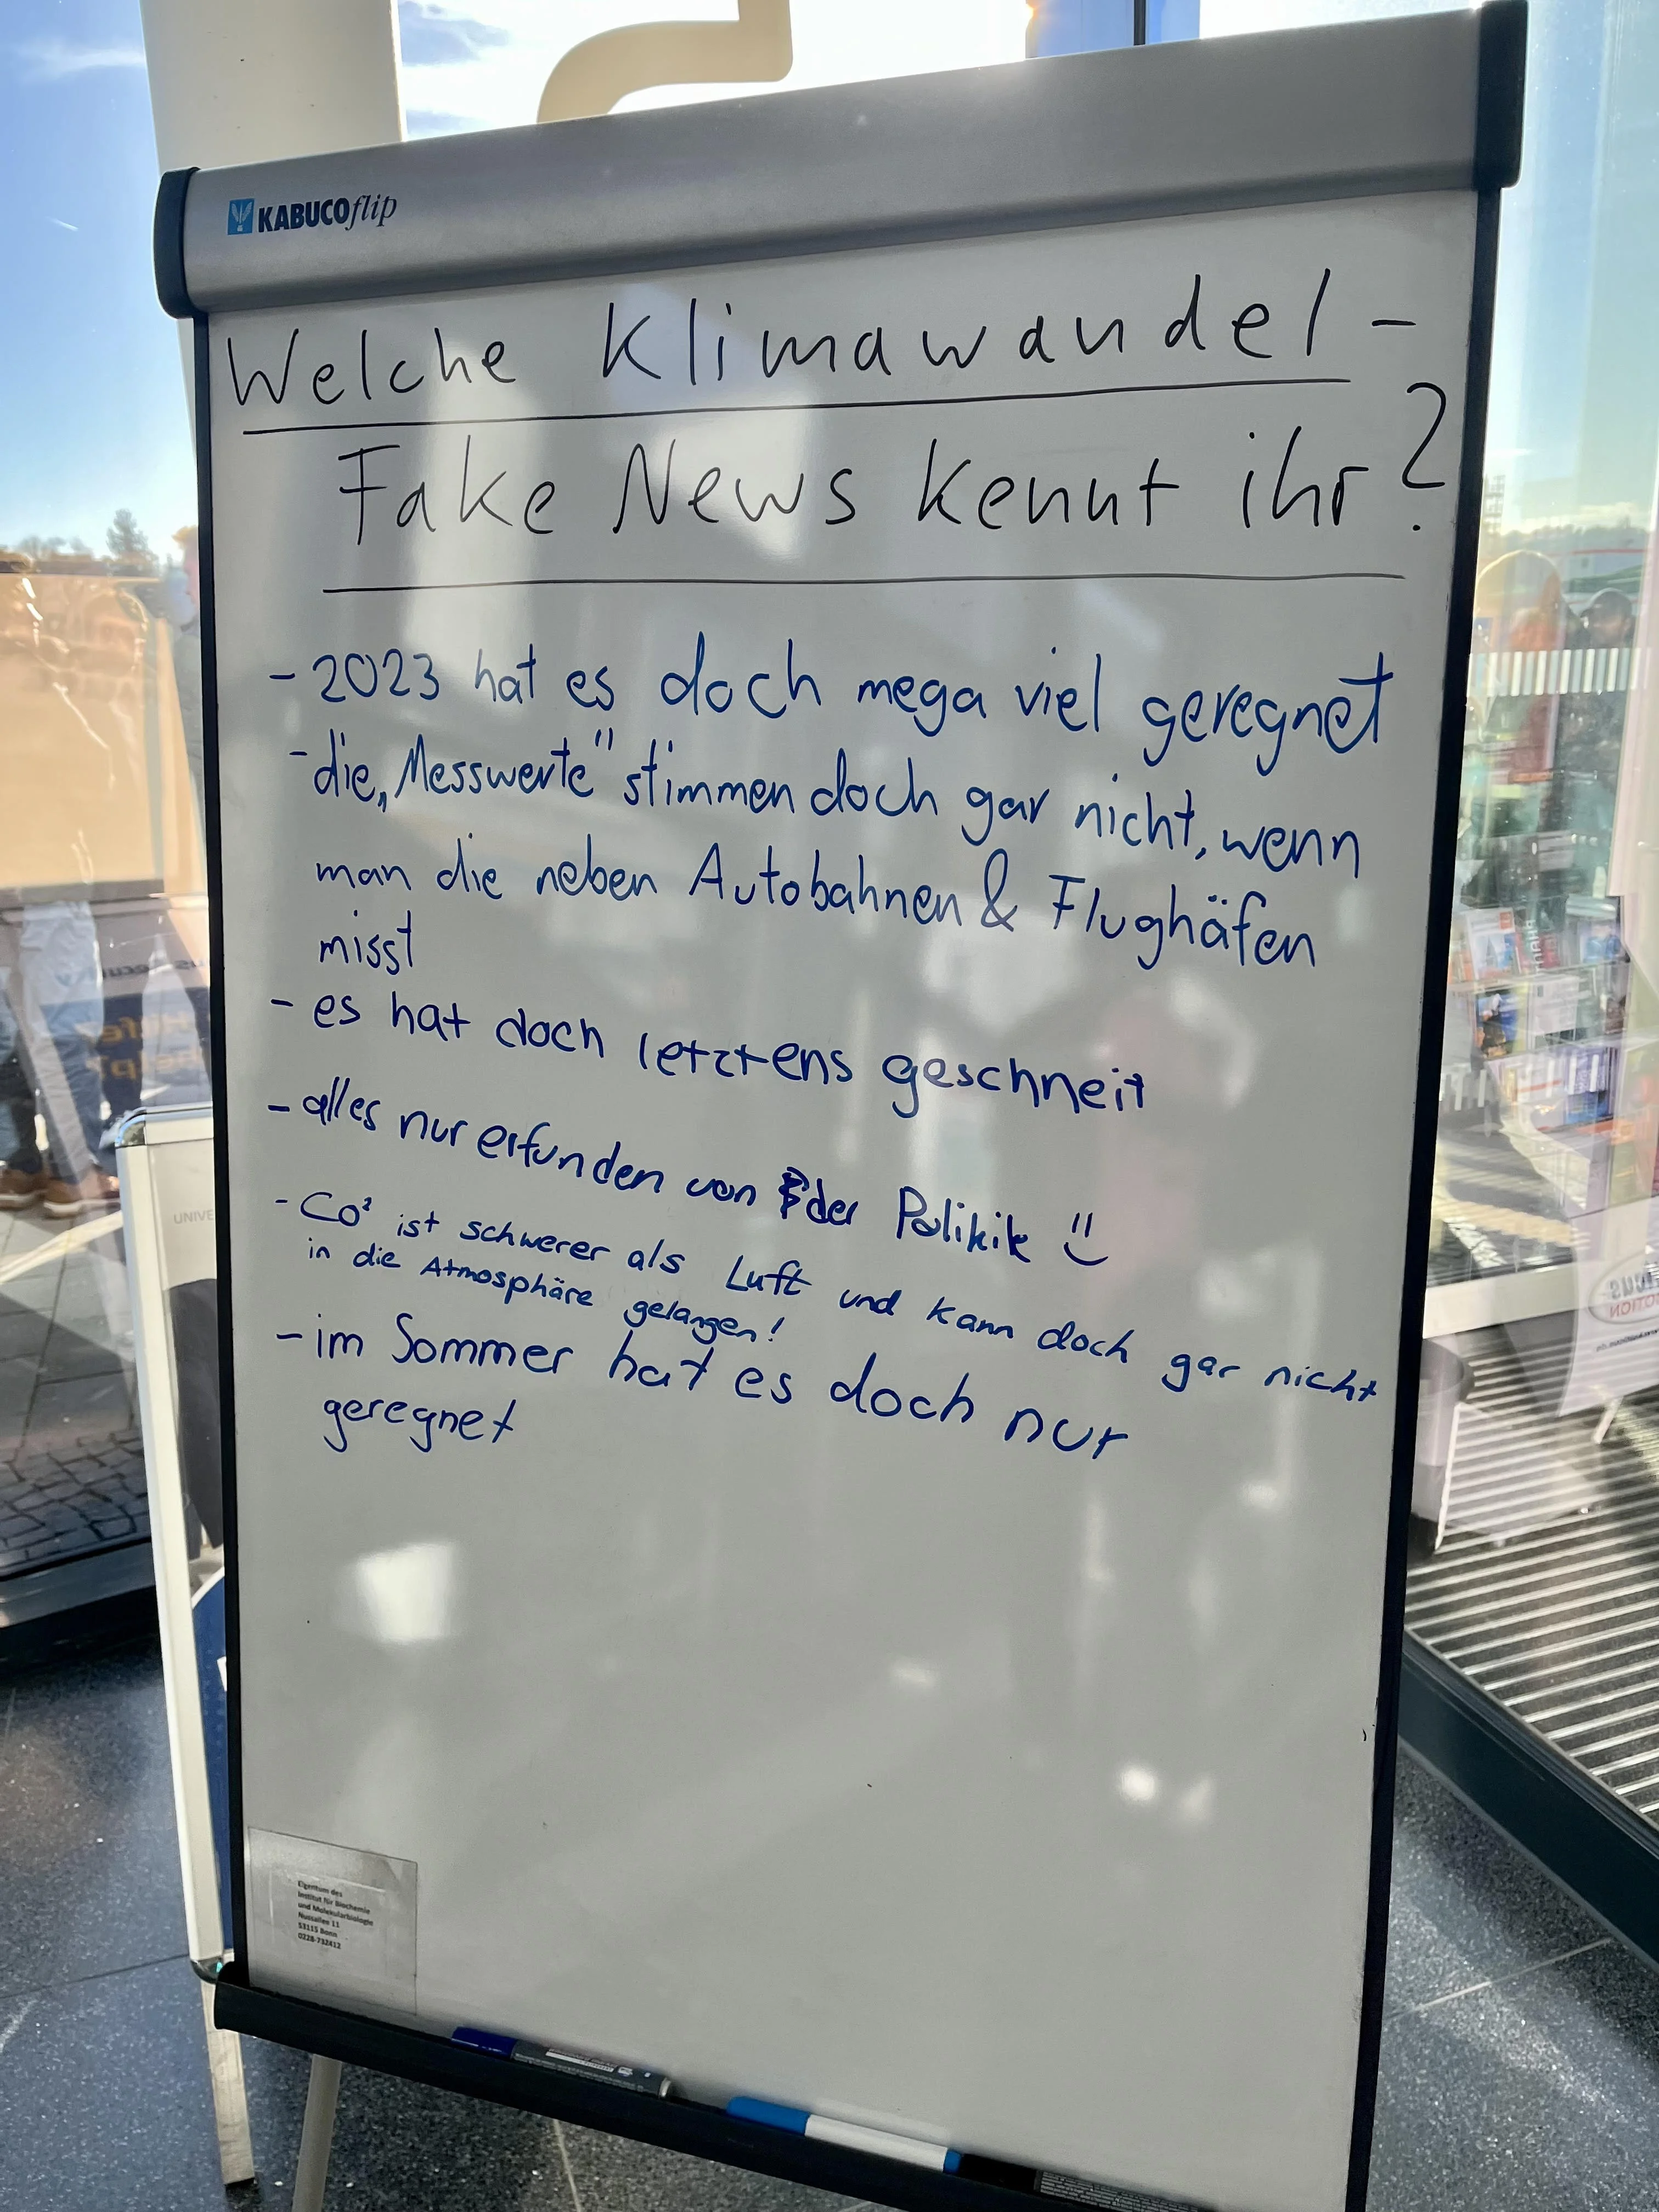 KABUCOflip
Welche Klimawandel-
Fake News kennt ihr?
- 2023 hat es doch mega viel geregnet
- die „Messwerte" stimmen doch gar nicht, wenn
man die neben Autobahnen & Flughäfen
misst
- es hat doch letztens geschneit
- alles nur erfunden von der Politik
- Co² ist schwerer als Luft und kann doch gar nicht
in die Atmosphäre gelangen!
- im Sommer hat es doch nur
geregnet
UNIVE
Eigentum des
Institut für Biochemie
und Molekularbiologie
Nussallee 11
53115 Bonn
0228-732412